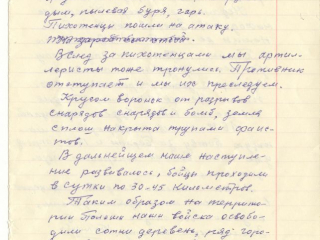 дым, пылевая буря, гарь.
Пехотенцы пошли на атаку.
Вслед за пехотенцами мы артил-
леристы тоже тронулись. Противник
отступает и мы их преследуем.
Кругом воронок от разрывов
снарядов снарядов и бомб, земля
сплош накрыта трупами фашис-
тов.
В дальнейщем наше наступле-
ние развивалось, бойцы проходили
в сутки по 30-45 километров.
Таким образом на террито-
рии Польши наши войска освобо-
дили сотни деревень, ряд горо-